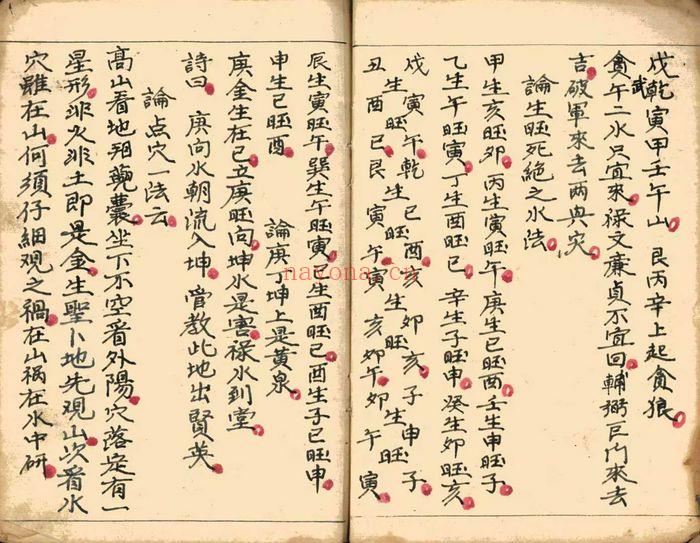 戊乾寅甲壬午山 艮丙辛上起貪狼
貪武午二水只宜來 祿文廉貞不宜回 輔弼巨门來去
吉破軍來去两與灾
論生旺死絕之水法
甲生亥旺卯 丙生寅旺午 庚生巳旺酉 壬生申旺子
乙生午旺寅 丁生酉旺巳 辛生子旺申 癸生卯旺亥
戊寅午乾巳酉亥卯亥子申子
生旺生旺生旺生旺
丑酉巳艮寅午寅亥卯午卯午寅
辰生寅旺午 巽生午旺寅 巳生酉旺巳 酉生子巳旺申
申生巳旺酉 論庚丁坤上是黄泉
庚金生在巳立庚旺向坤水是害祿水到堂
詩曰 庚向水朝流入坤 管教此地出賢英
論点穴一法云
高山看地相 囊坐下不空看外陽穴落定有一
星形非火非土即是金生聖卜地先观山次看水
穴雖在山何須仔細观之禍在山祸在水中研
nacona.cn